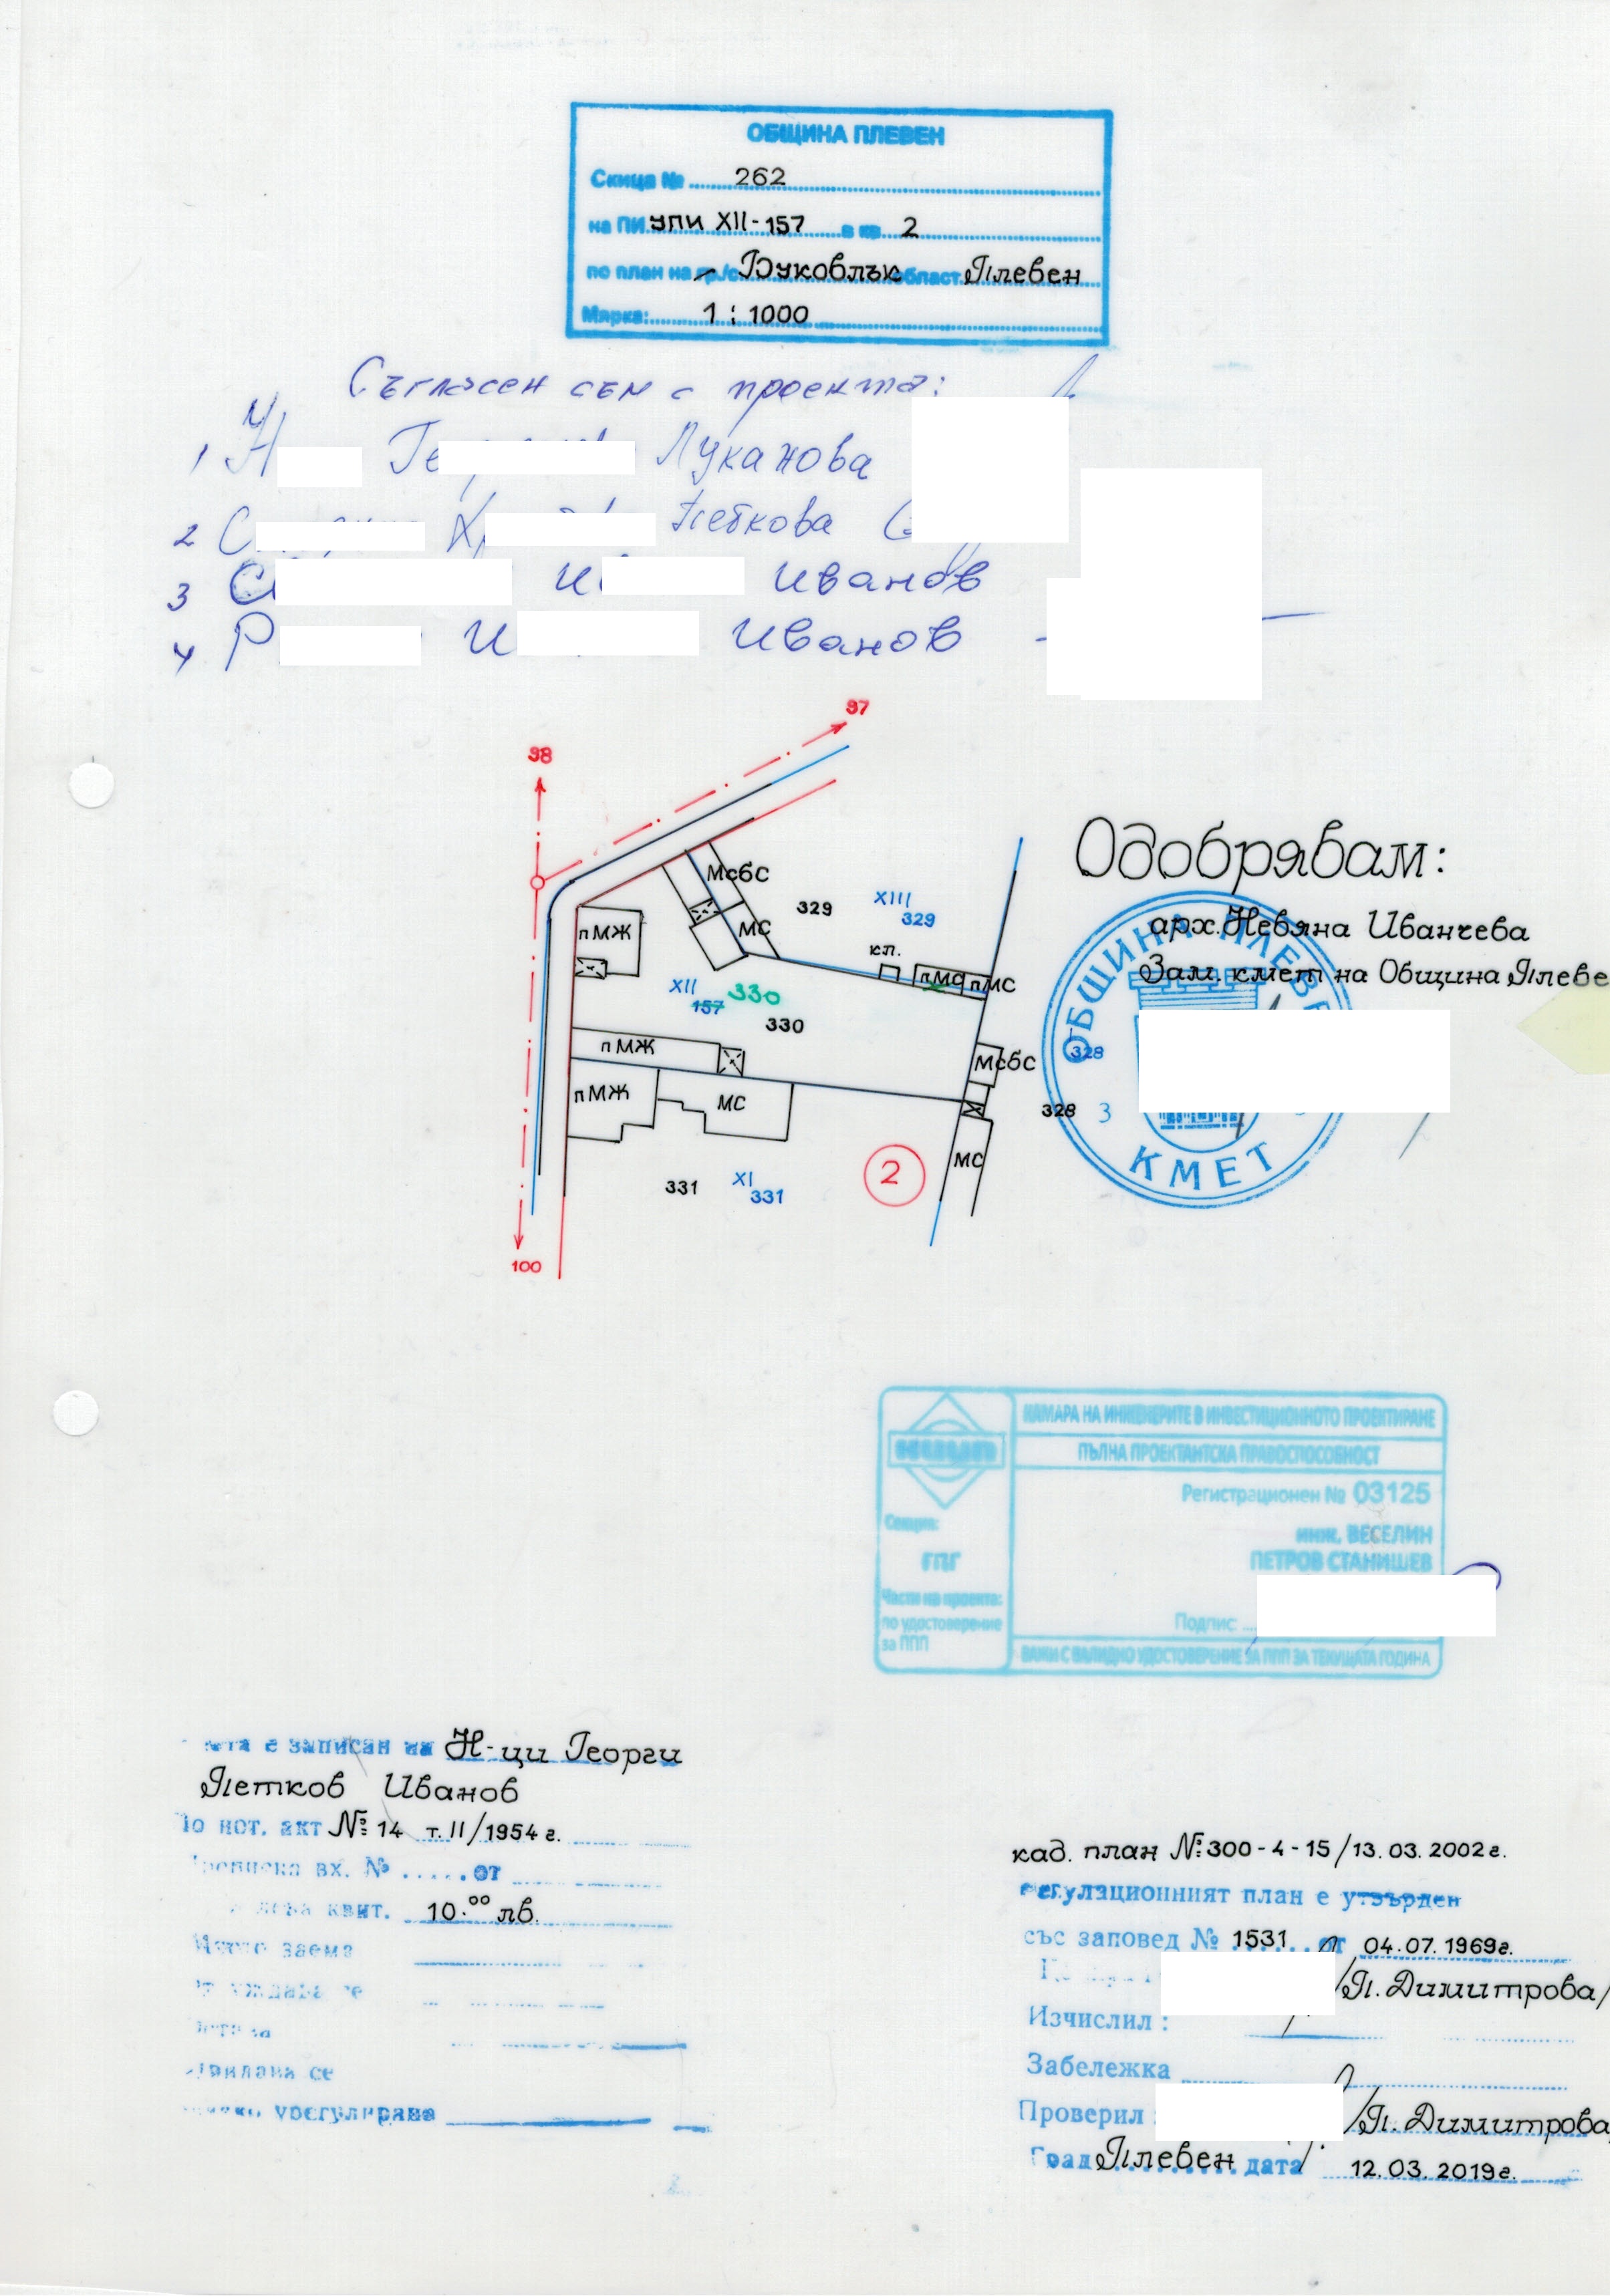 ОБЩИНА ПЛЕВЕН
Скица № 262
на ПИ УПИ XII-157 в кв. 2
по план на гр./с. Буковлък област Плевен
Мярка: 1 : 1000
Съгласен съм с проекта:
1 Лукахова
2 Петкова
3 Иванов
4 Иванов
97
98
МсбС
329
XIII
329
пМЖ
МС
кл.
пМС
пМС
XII
157
330
330
пМЖ
МсбС
328
328
пМЖ
МС
МС
2
331
XI
331
100
Одобрявам:
арх. Невяна Иванчева
Зам. кмет на Община Плеве
ОБЩИНА ПЛЕВЕН
3
КМЕТ
КАМАРА НА ИНЖЕНЕРИТЕ В ИНВЕСТИЦИОННОТО ПРОЕКТИРАНЕ
ПЪЛНА ПРОЕКТАНТСКА ПРАВОСПОСОБНОСТ
Регистрационен № 03125
Секция:
инж. ВЕСЕЛИН
ГПГ
ПЕТРОВ СТАНИШЕВ
Части на проекта:
по удостоверение
за ППП
Подпис:
ВАЖИ С ВАЛИДНО УДОСТОВЕРЕНИЕ ЗА ППП ЗА ТЕКУЩАТА ГОДИНА
е записан на Н-ци Георги
Петков Иванов
По нот. акт № 14 т. II/1954 г.
вх. № ...... от
квит. 10.00 лв.
заема
се
урегулирана
кад. план № 300-4-15/13.03.2002г.
Регулационният план е утвърден
със заповед № 1531 от 04.07.1969г.
/П. Димитрова/
Изчислил :
Забележка
Проверил : /П. Димитрова
Град Плевен дата 12.03.2019г.